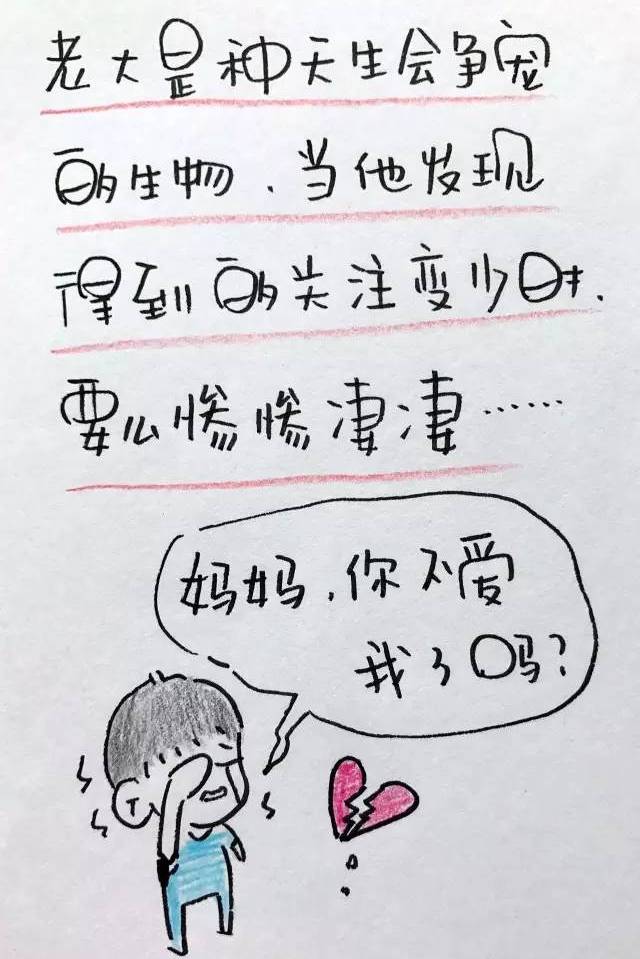 老大是种天生会争宠
的生物、当他发现
得到的关注变少时、
要么惨惨凄凄……
妈妈、你不爱
我了吗?